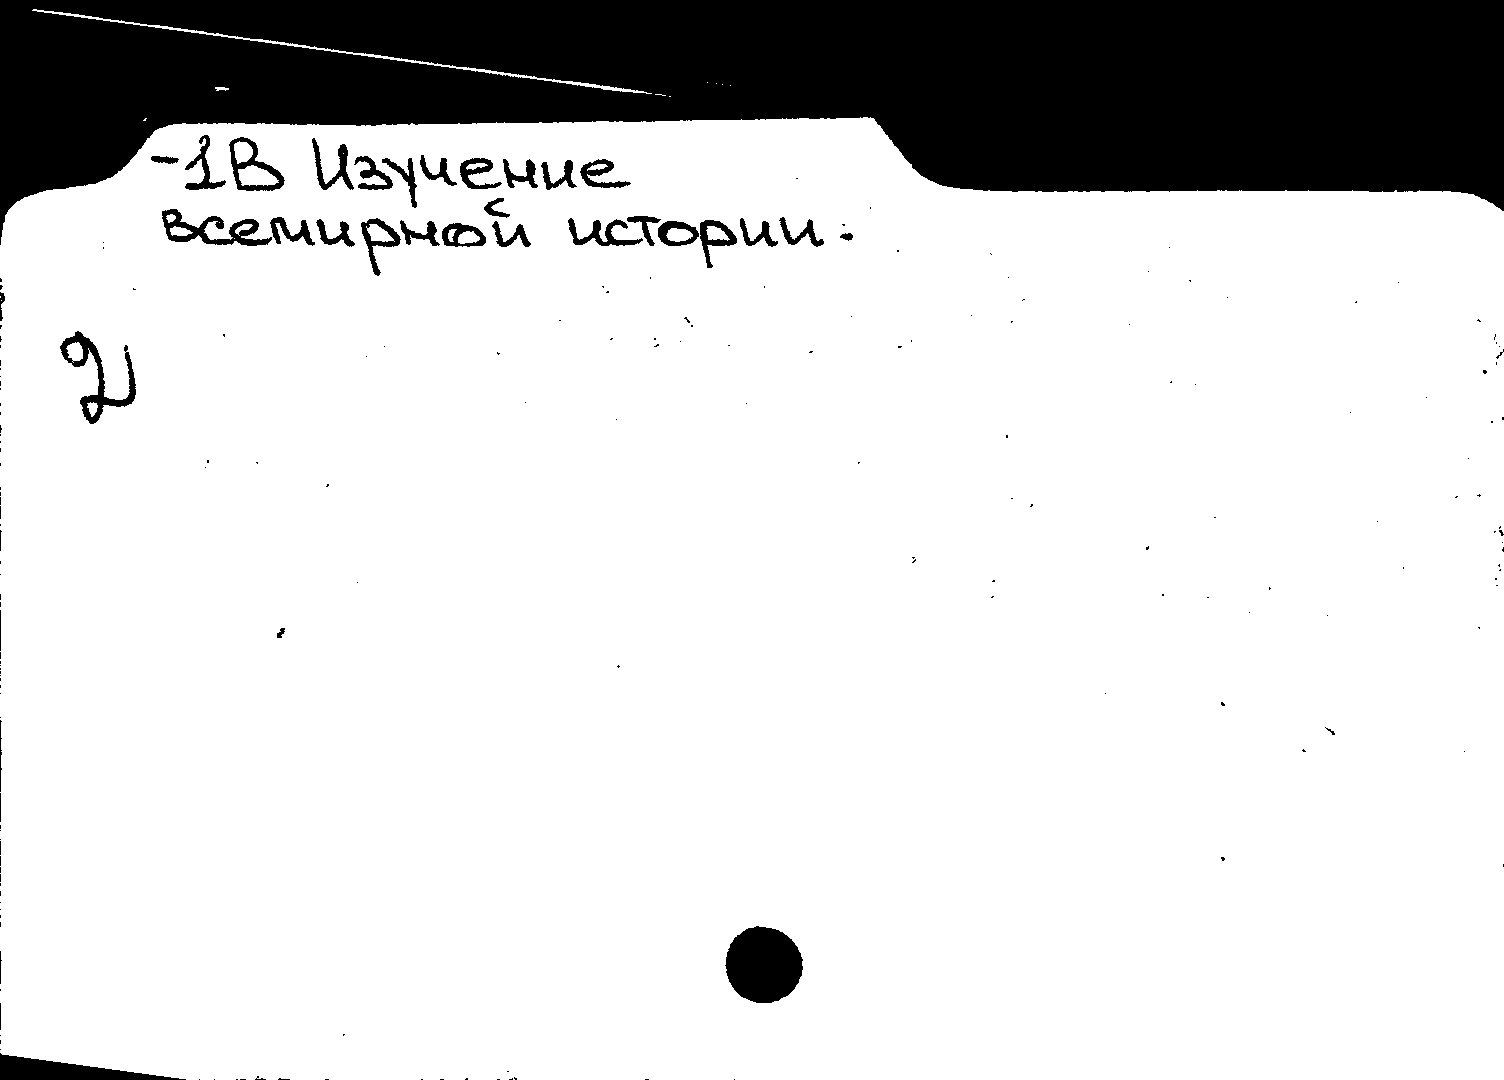 -1В Изучение
всемирной истории.
2